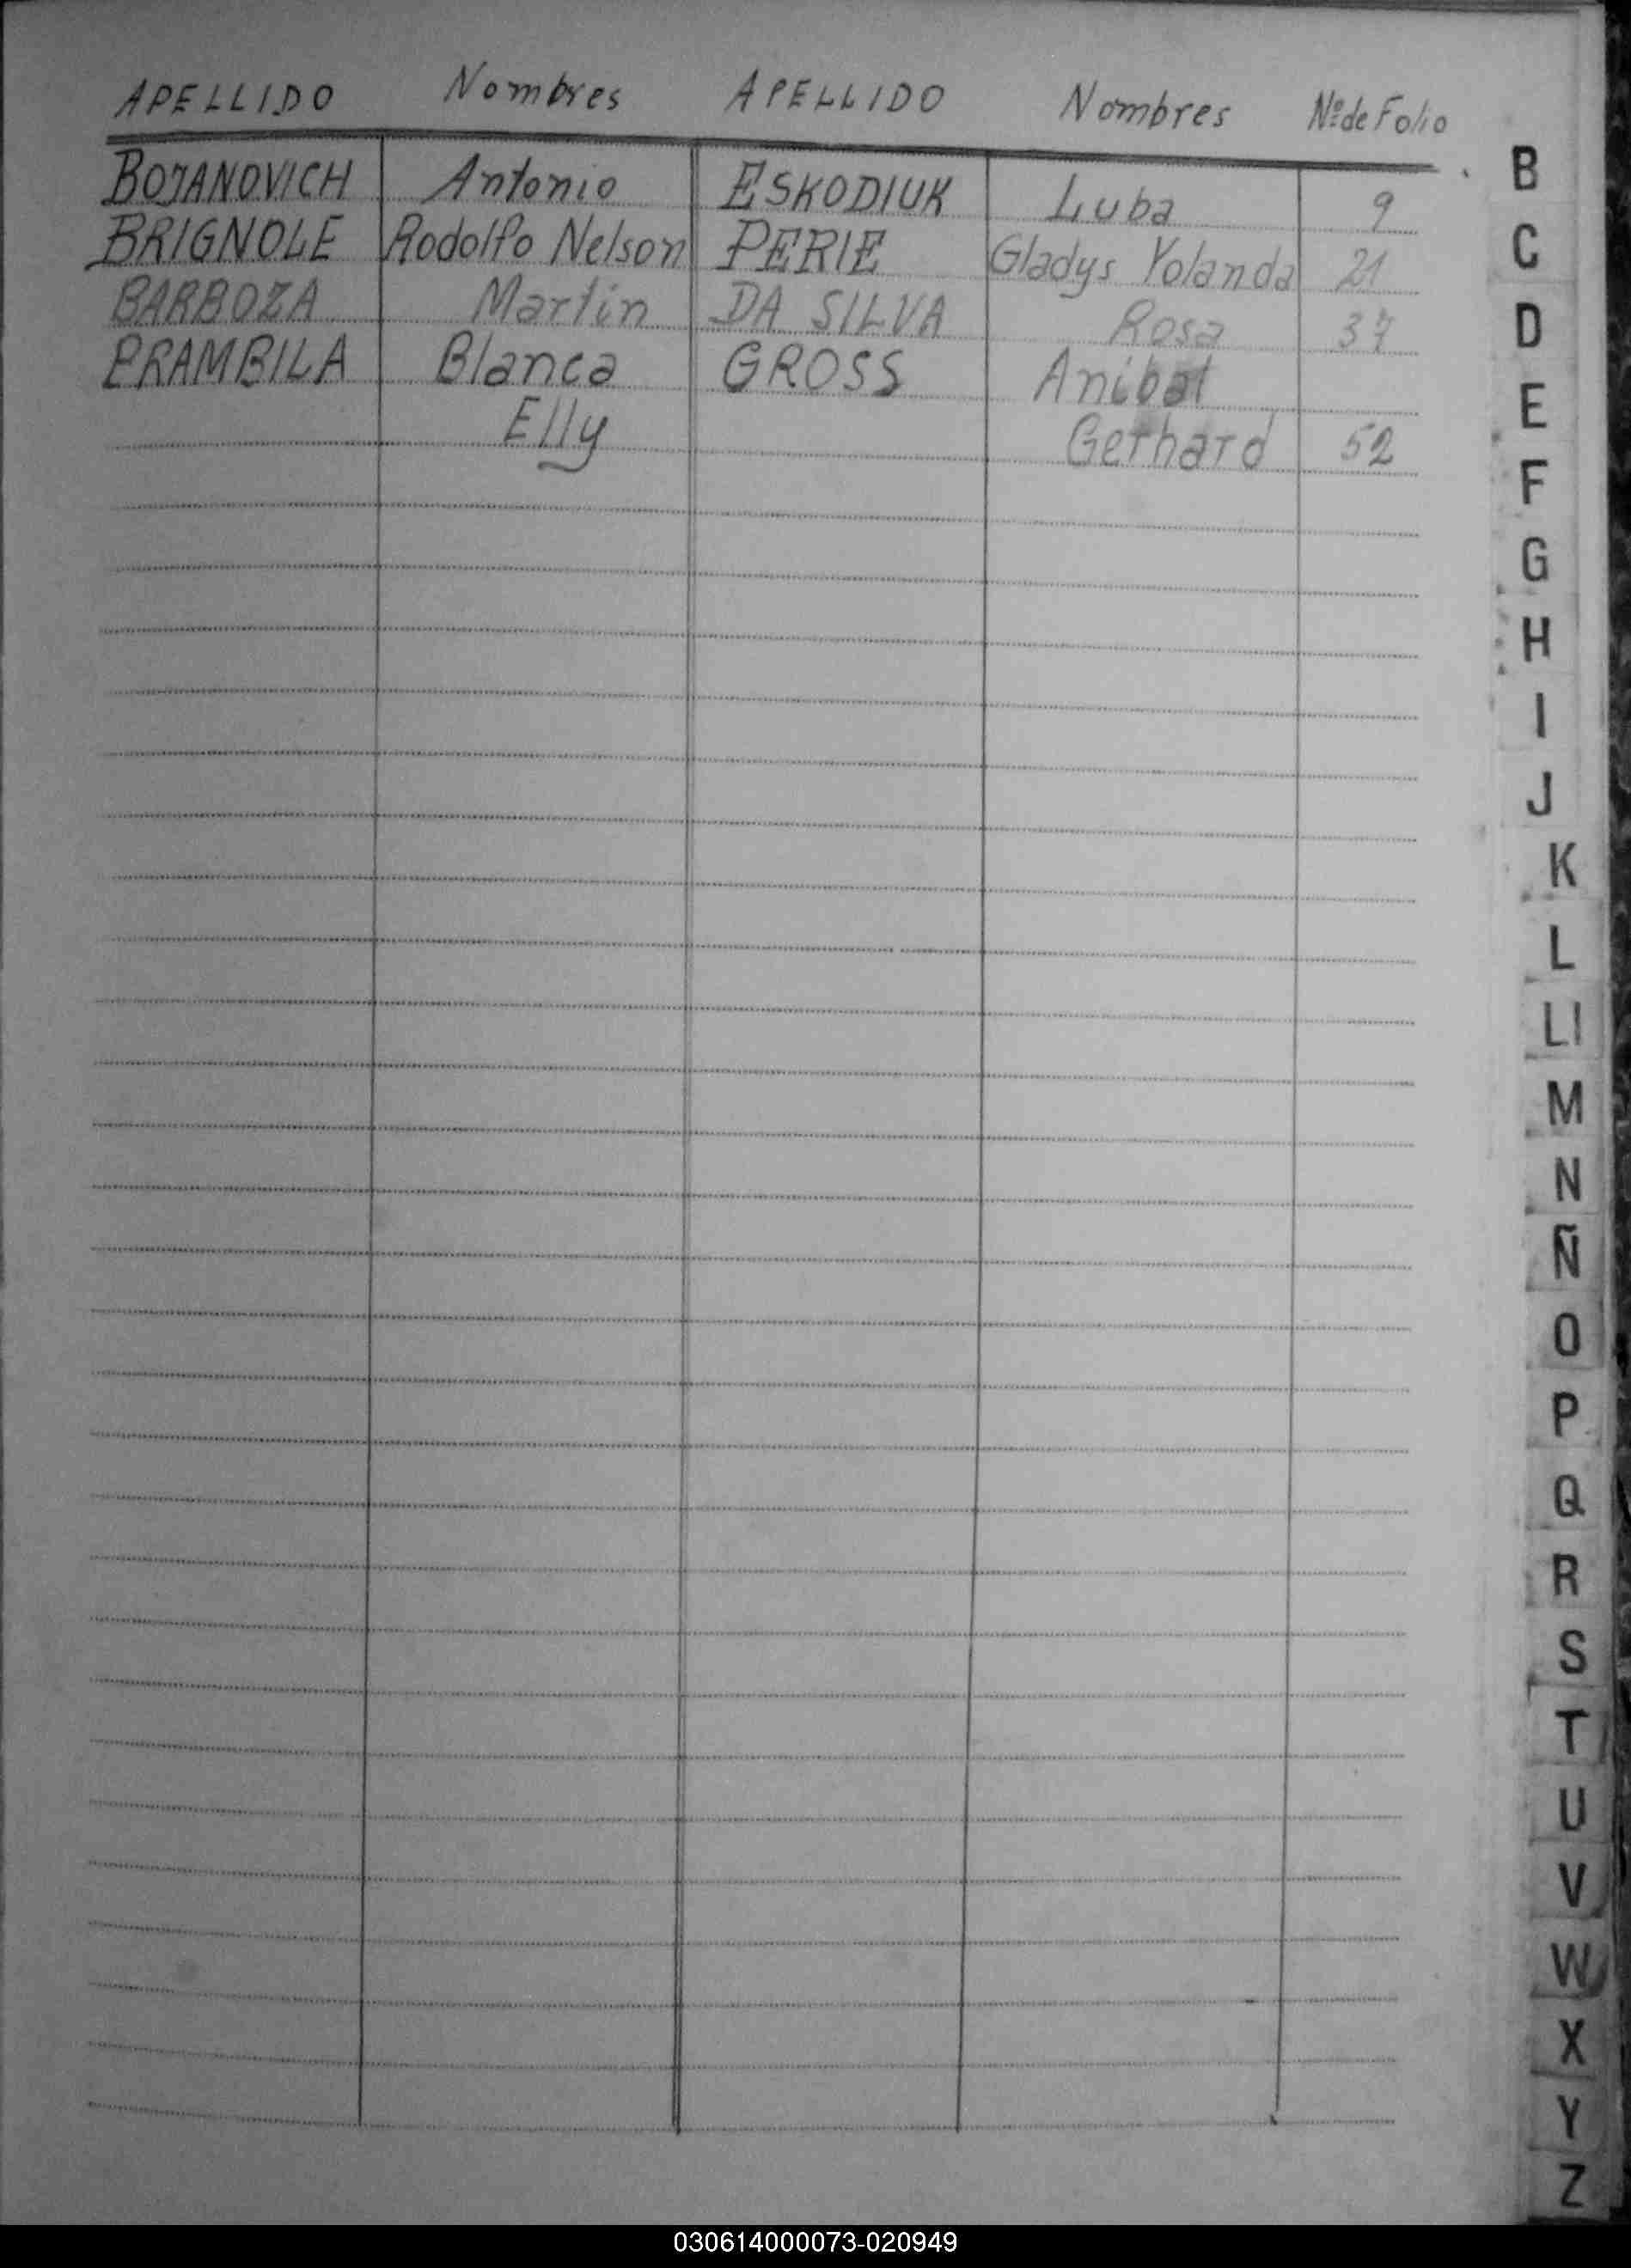 APELLIDO Nombres APELLIDO Nombres Nº de Folio
BOJANOVICH Antonio ESKODIUK Luba 9
BRIGNOLE Rodolfo Nelson PERIE Gladys Yolanda 21
BARBOZA Martin DA SILVA Rosa 37
BRAMBILA Blanca GROSS Anibal
Elly Gerhard 52
B
C
D
E
F
G
H
I
J
K
L
Ll
M
N
Ñ
O
P
Q
R
S
T
U
V
W
X
Y
Z
030614000073-020949